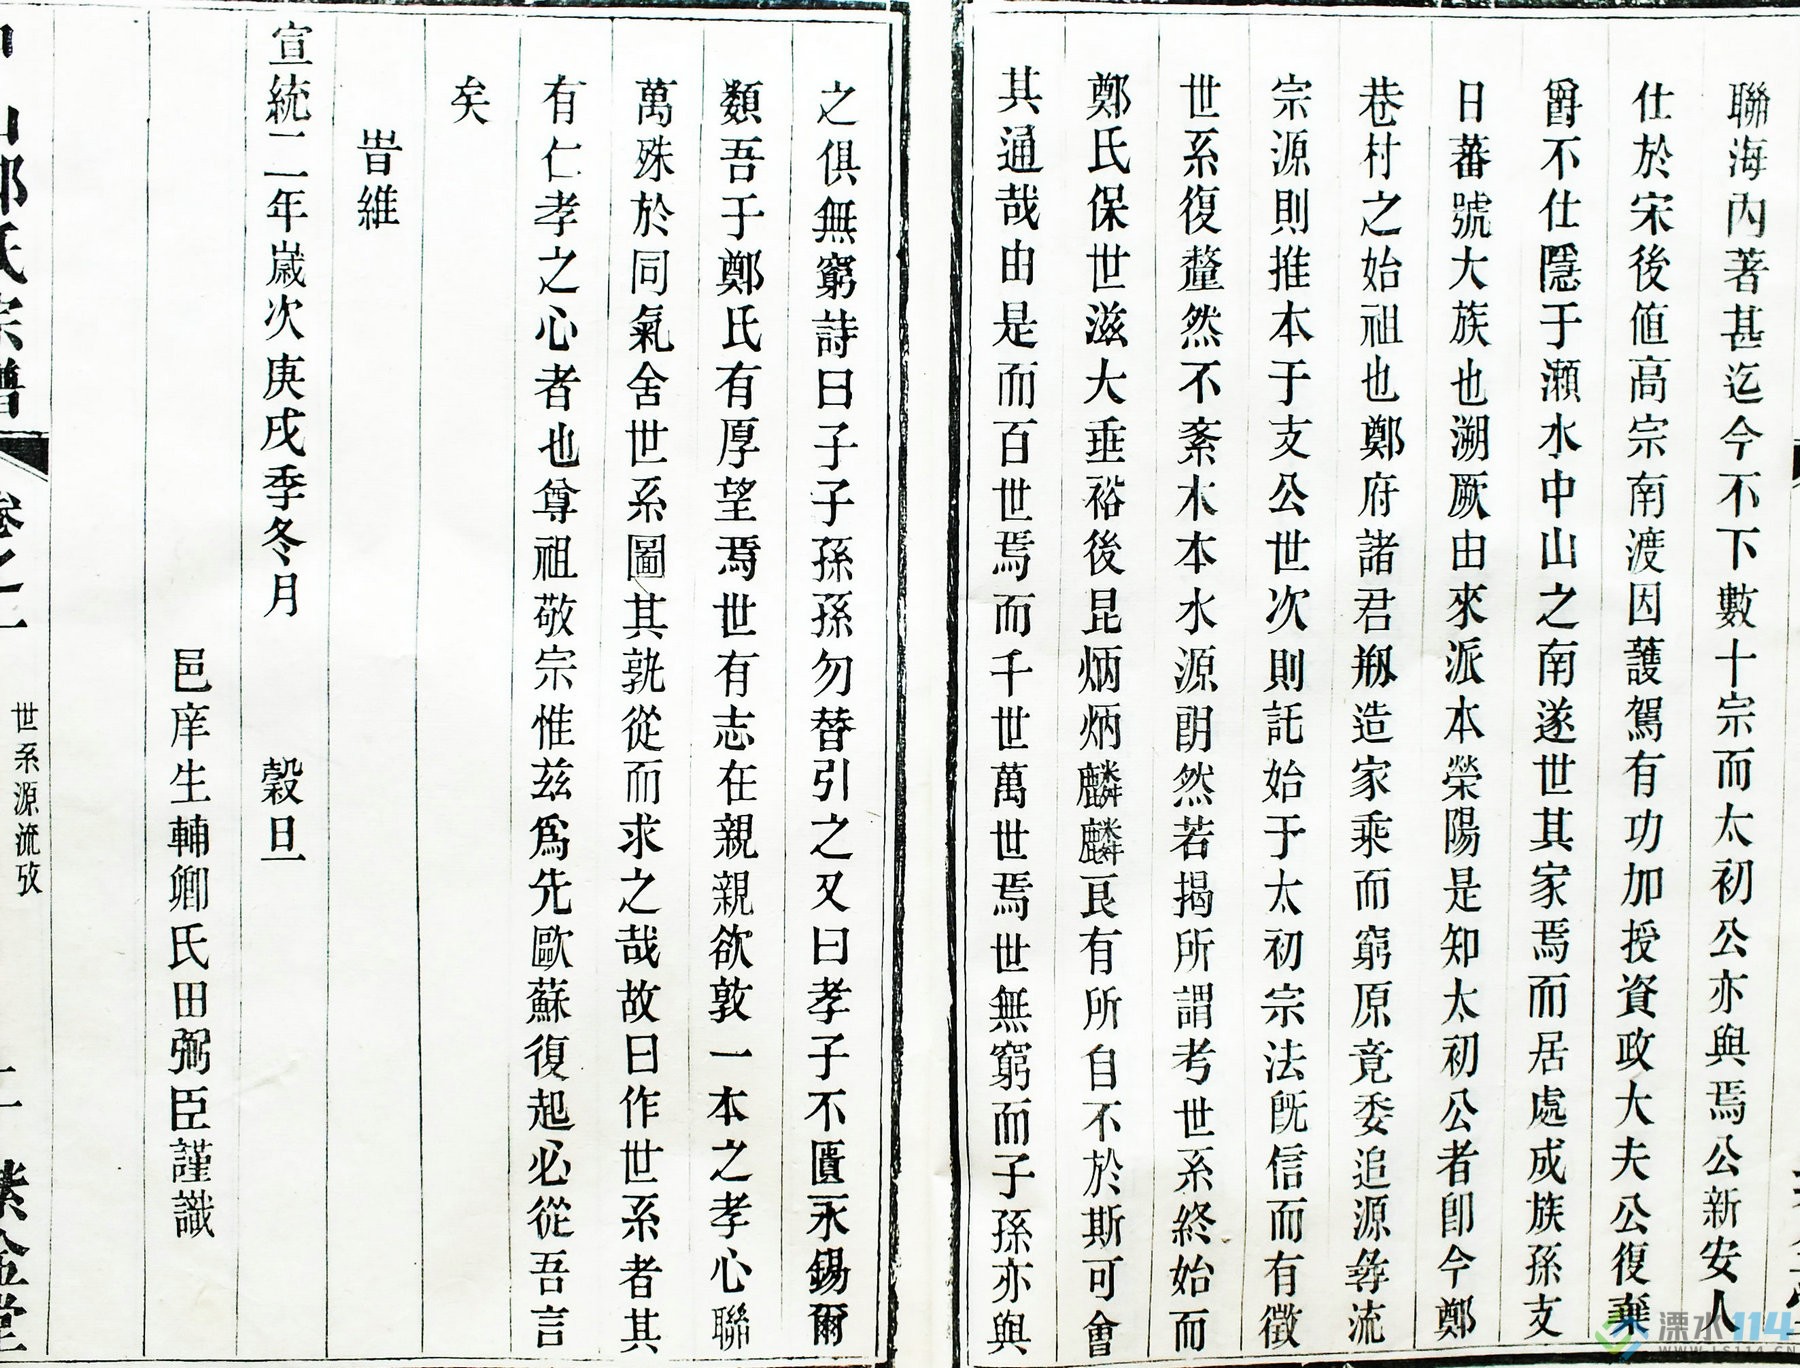 聯海內著甚迄今不下數十宗而太初公亦與焉公新安人
仕於宋後值高宗南渡因護駕有功加授資政大夫公復棄
爵不仕隱于瀨水中山之南遂世其家焉而居處成族孫支
日蕃號大族也溯厥由來派本榮陽是知太初公者卽今鄭
巷村之始祖也鄭府諸君剏造家乘而窮原竟委追源彜流
宗源則推本于支公世次則託始于太初宗法旣信而有徵
世系復釐然不紊木本水源朗然若揭所謂考世系終始而
鄭氏保世滋大垂裕後昆炳炳麟麟良有所自不於斯可會
其通哉由是而百世焉而千世萬世焉世無窮而子孫亦與
之俱無窮詩曰子子孫孫勿替引之又曰孝子不匱永錫爾
類吾于鄭氏有厚望焉世有志在親親欲敦一本之孝心聯
萬殊於同氣舍世系圖其孰從而求之哉故曰作世系者其
有仁孝之心者也尊祖敬宗惟玆爲先歐蘇復起必從吾言
矣
旹維
宣統二年歲次庚戌季冬月 穀旦
邑庠生輔卿氏田弼臣謹識
山鄭氏宗譜 卷之一 世系源流攷 二 紫金堂
溧水114
WWW.LS114.CN